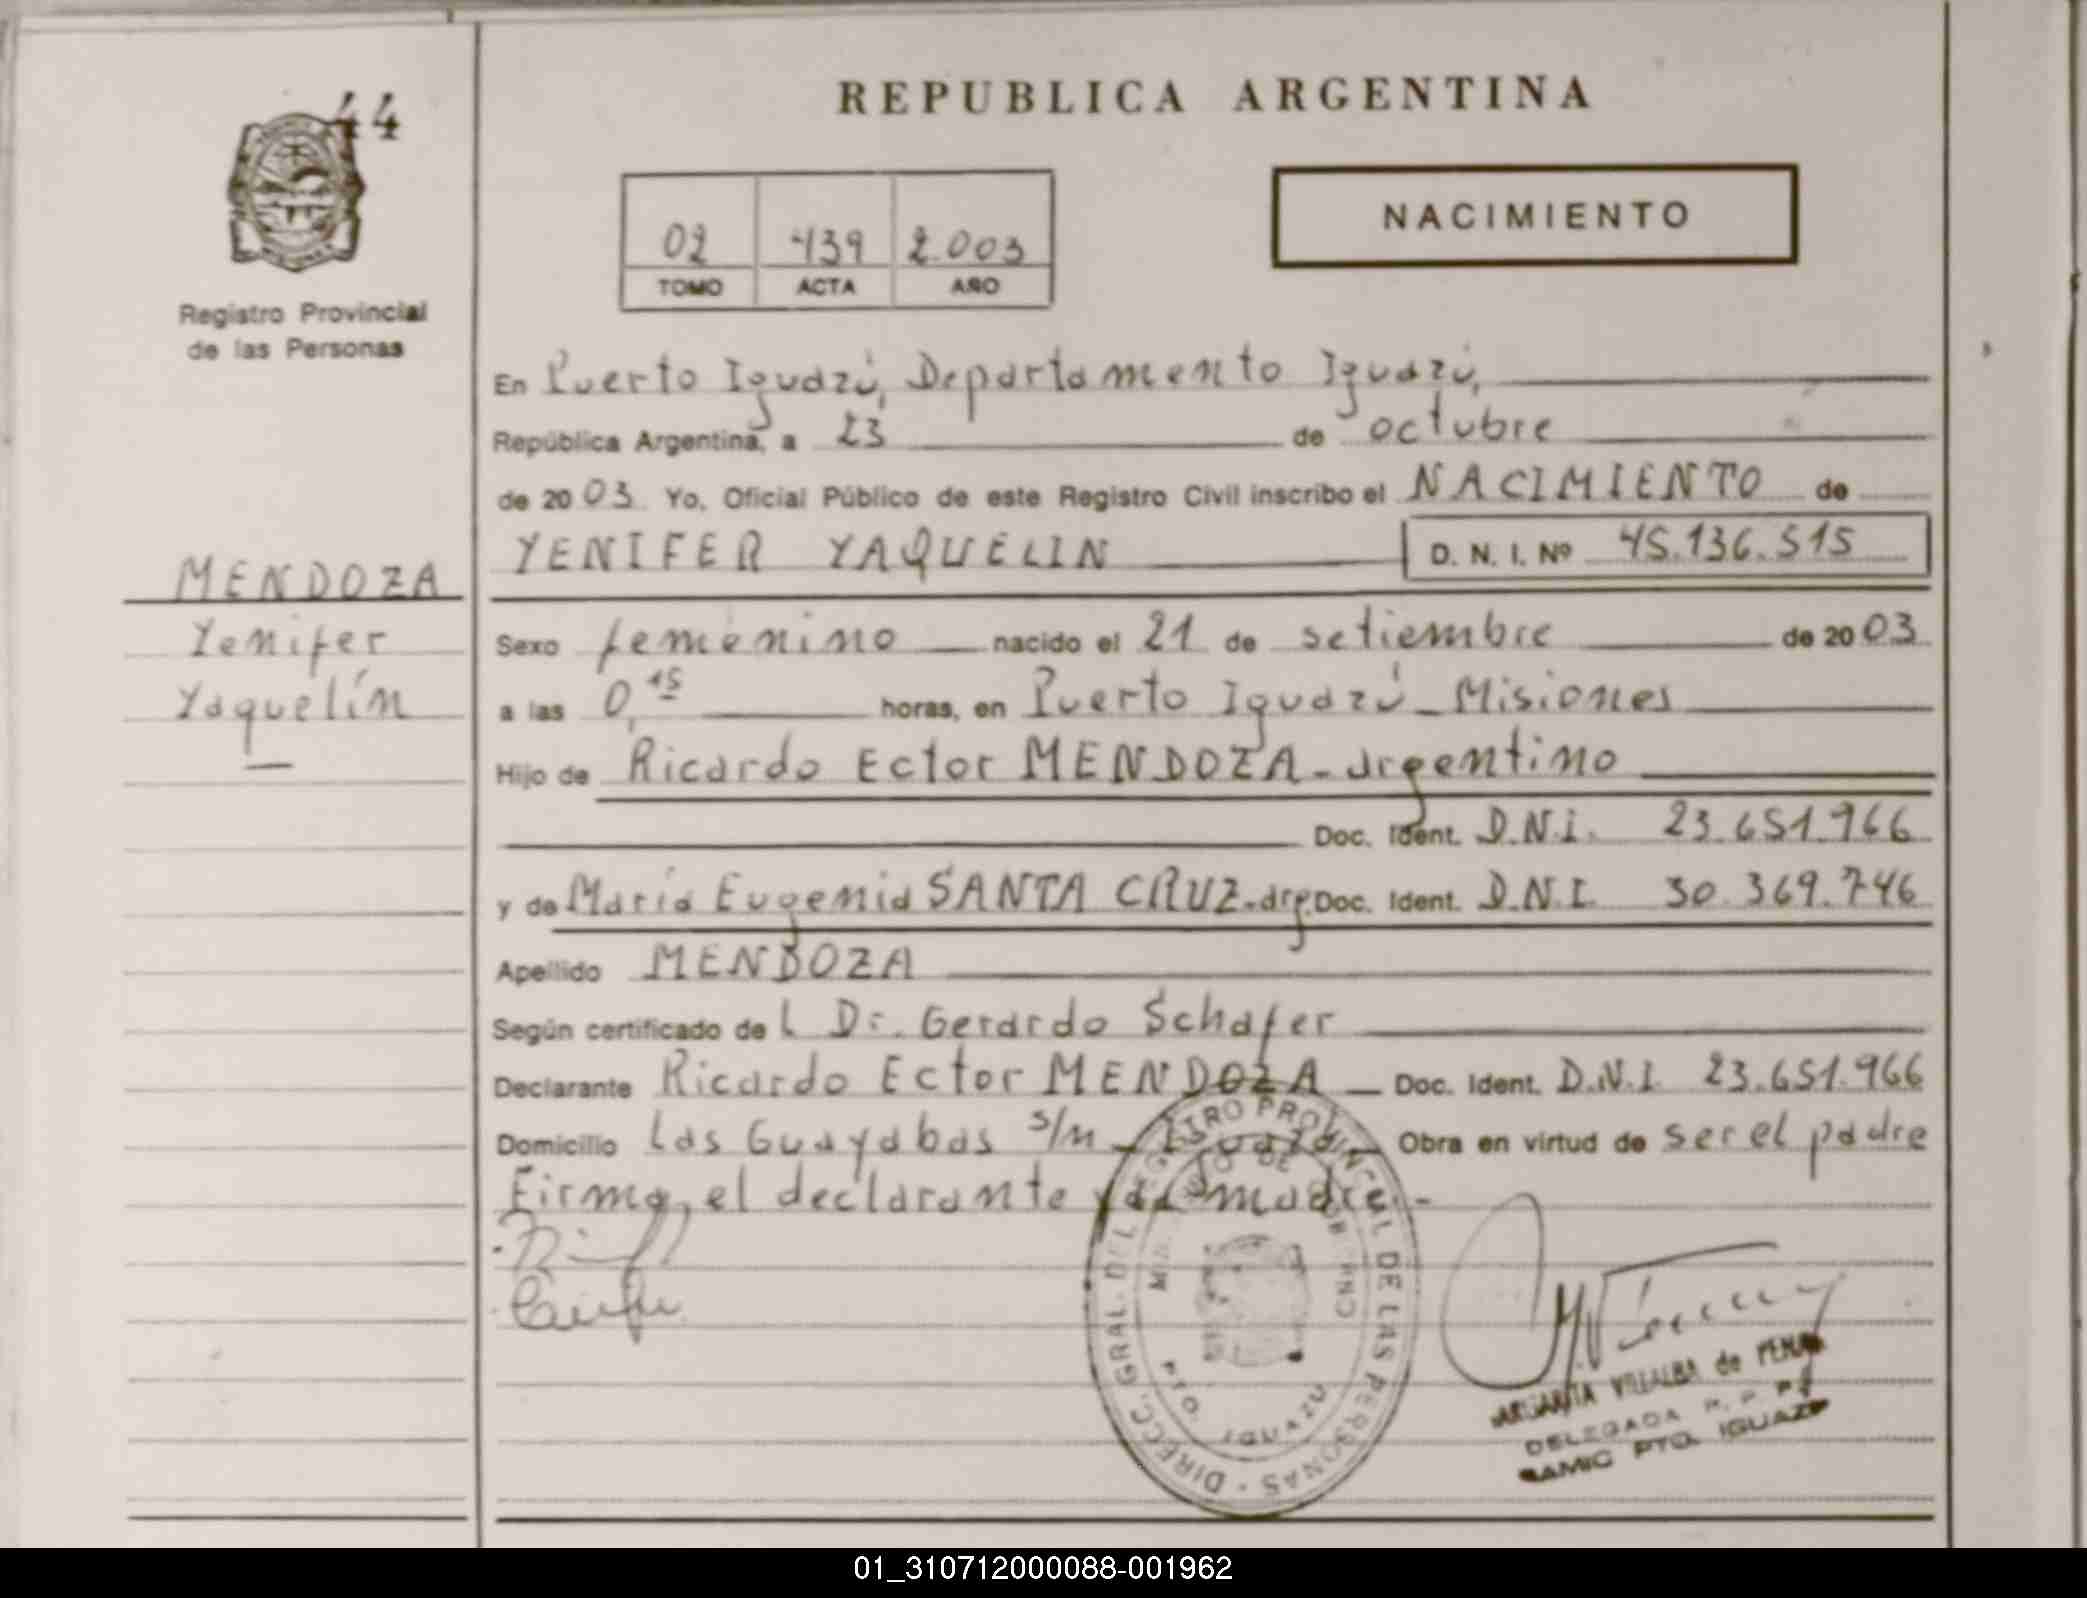 44
Registro Provincial
de las Personas
MENDOZA
Yenifer
Yaquelín
REPUBLICA ARGENTINA
02 439 2.003
TOMO ACTA AÑO
NACIMIENTO
En Puerto Iguazú, Departamento Iguazú,
República Argentina, a 23 de octubre
de 2003 Yo, Oficial Público de este Registro Civil inscribo el NACIMIENTO de
YENIFER YAQUELIN D. N. I. Nº 45.136.515
Sexo femenino nacido el 21 de setiembre de 2003
a las 0,15 horas, en Puerto Iguazú - Misiones
Hijo de Ricardo Ector MENDOZA - argentino
Doc. Ident. D.N.I. 23.651.966
y de María Eugenia SANTA CRUZ - arg. Doc. Ident. D.N.I. 30.369.746
Apellido MENDOZA
Según certificado de l Dr. Gerardo Schafer
Declarante Ricardo Ector MENDOZA Doc. Ident. D.N.I. 23.651.966
Domicilio Las Guayabas s/n - Iguazú Obra en virtud de ser el padre
Firma, el declarante y la madre.-
DIRECC. GRAL. DEL REGISTRO PROVINCIAL DE LAS PERSONAS
PTO. IGUAZU
VILLALBA de
DELEGADA R. P. P.
SAMIC PTO. IGUAZU
01_310712000088-001962